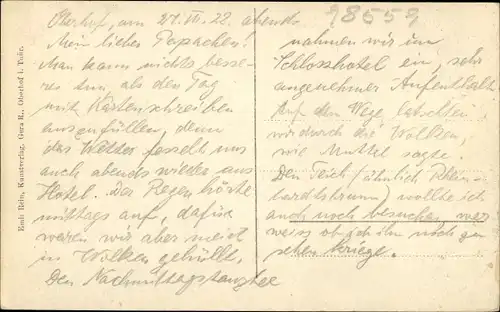 98559
Oberhof, am 21. VI. 22. abends
Mein liebes Papachen!
Man kann nichts besse-
res tun, als den Tag
mit Kartenschreiben
auszufüllen, denn
das Wetter fesselt uns
auch abends wieder ans
Hotel. Der Regen hörte
mittags auf, dafür
waren wir aber meist
in Wolken gehüllt.
Den Nachmittagstanztee
nahmen wir im
Schlosshotel ein, sehr
angenehmer Aufenthalt.
Auf dem Wege latschten
wir durch die Wolken,
wie Muttel sagte.
Den Teich (ähnlich Rhein-
hardtsbrunn) wollte ich
auch noch besuchen, wer
weiss ob ich ihn noch zu
sehen kriege.
Emil Rehn, Kunstverlag, Gera R., Oberhof i. Thür.